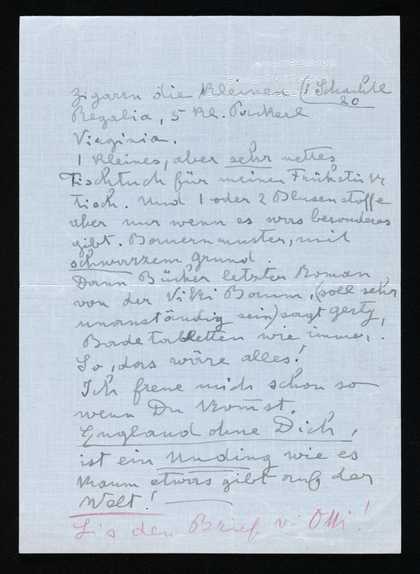 Zigaren die Kleinen (1 Schachtel
20
Regalia, 5 Kl. Packerl
Virginia.
1 Kleines, aber sehr nettes
Tischtuch für meinen Frühstücks
tisch. Und 1 oder 2 Blusenstoffe
aber nur wenn es was besonderes
gibt. Bauernmuster, mit
schwarzem Grund.
Dann Bücher letzter Roman
von der Viki Baum, (soll sehr
unanständig sein) sagt Gerty,
Badetabletten wie immer.
So, das wäre alles!
Ich freue mich schon so
wenn Du kommst.
England ohne Dich,
ist ein Unding wie es
kaum etwas gibt auf der
Welt!
Lis den Brief v. Olli!